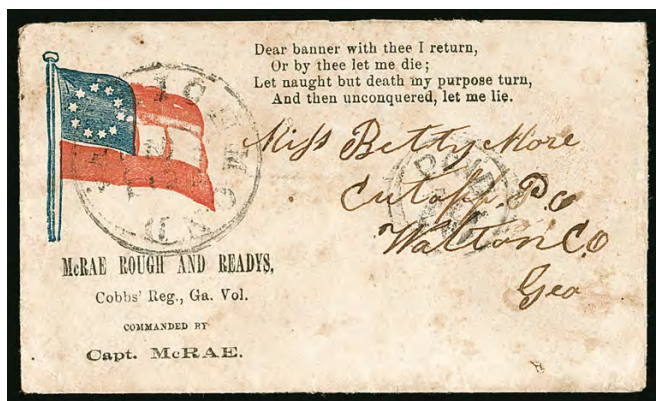 Dear banner with thee I return,
Or by thee let me die;
Let naught but death my purpose turn,
And then unconquered, let me lie.
RICHMOND
PAID
Miss Betty More
Cutoff P.o
Walton Co
Geo
McRAE ROUGH AND READYS,
Cobbs' Reg., Ga. Vol.
COMMANDED BY
Capt. McRAE.